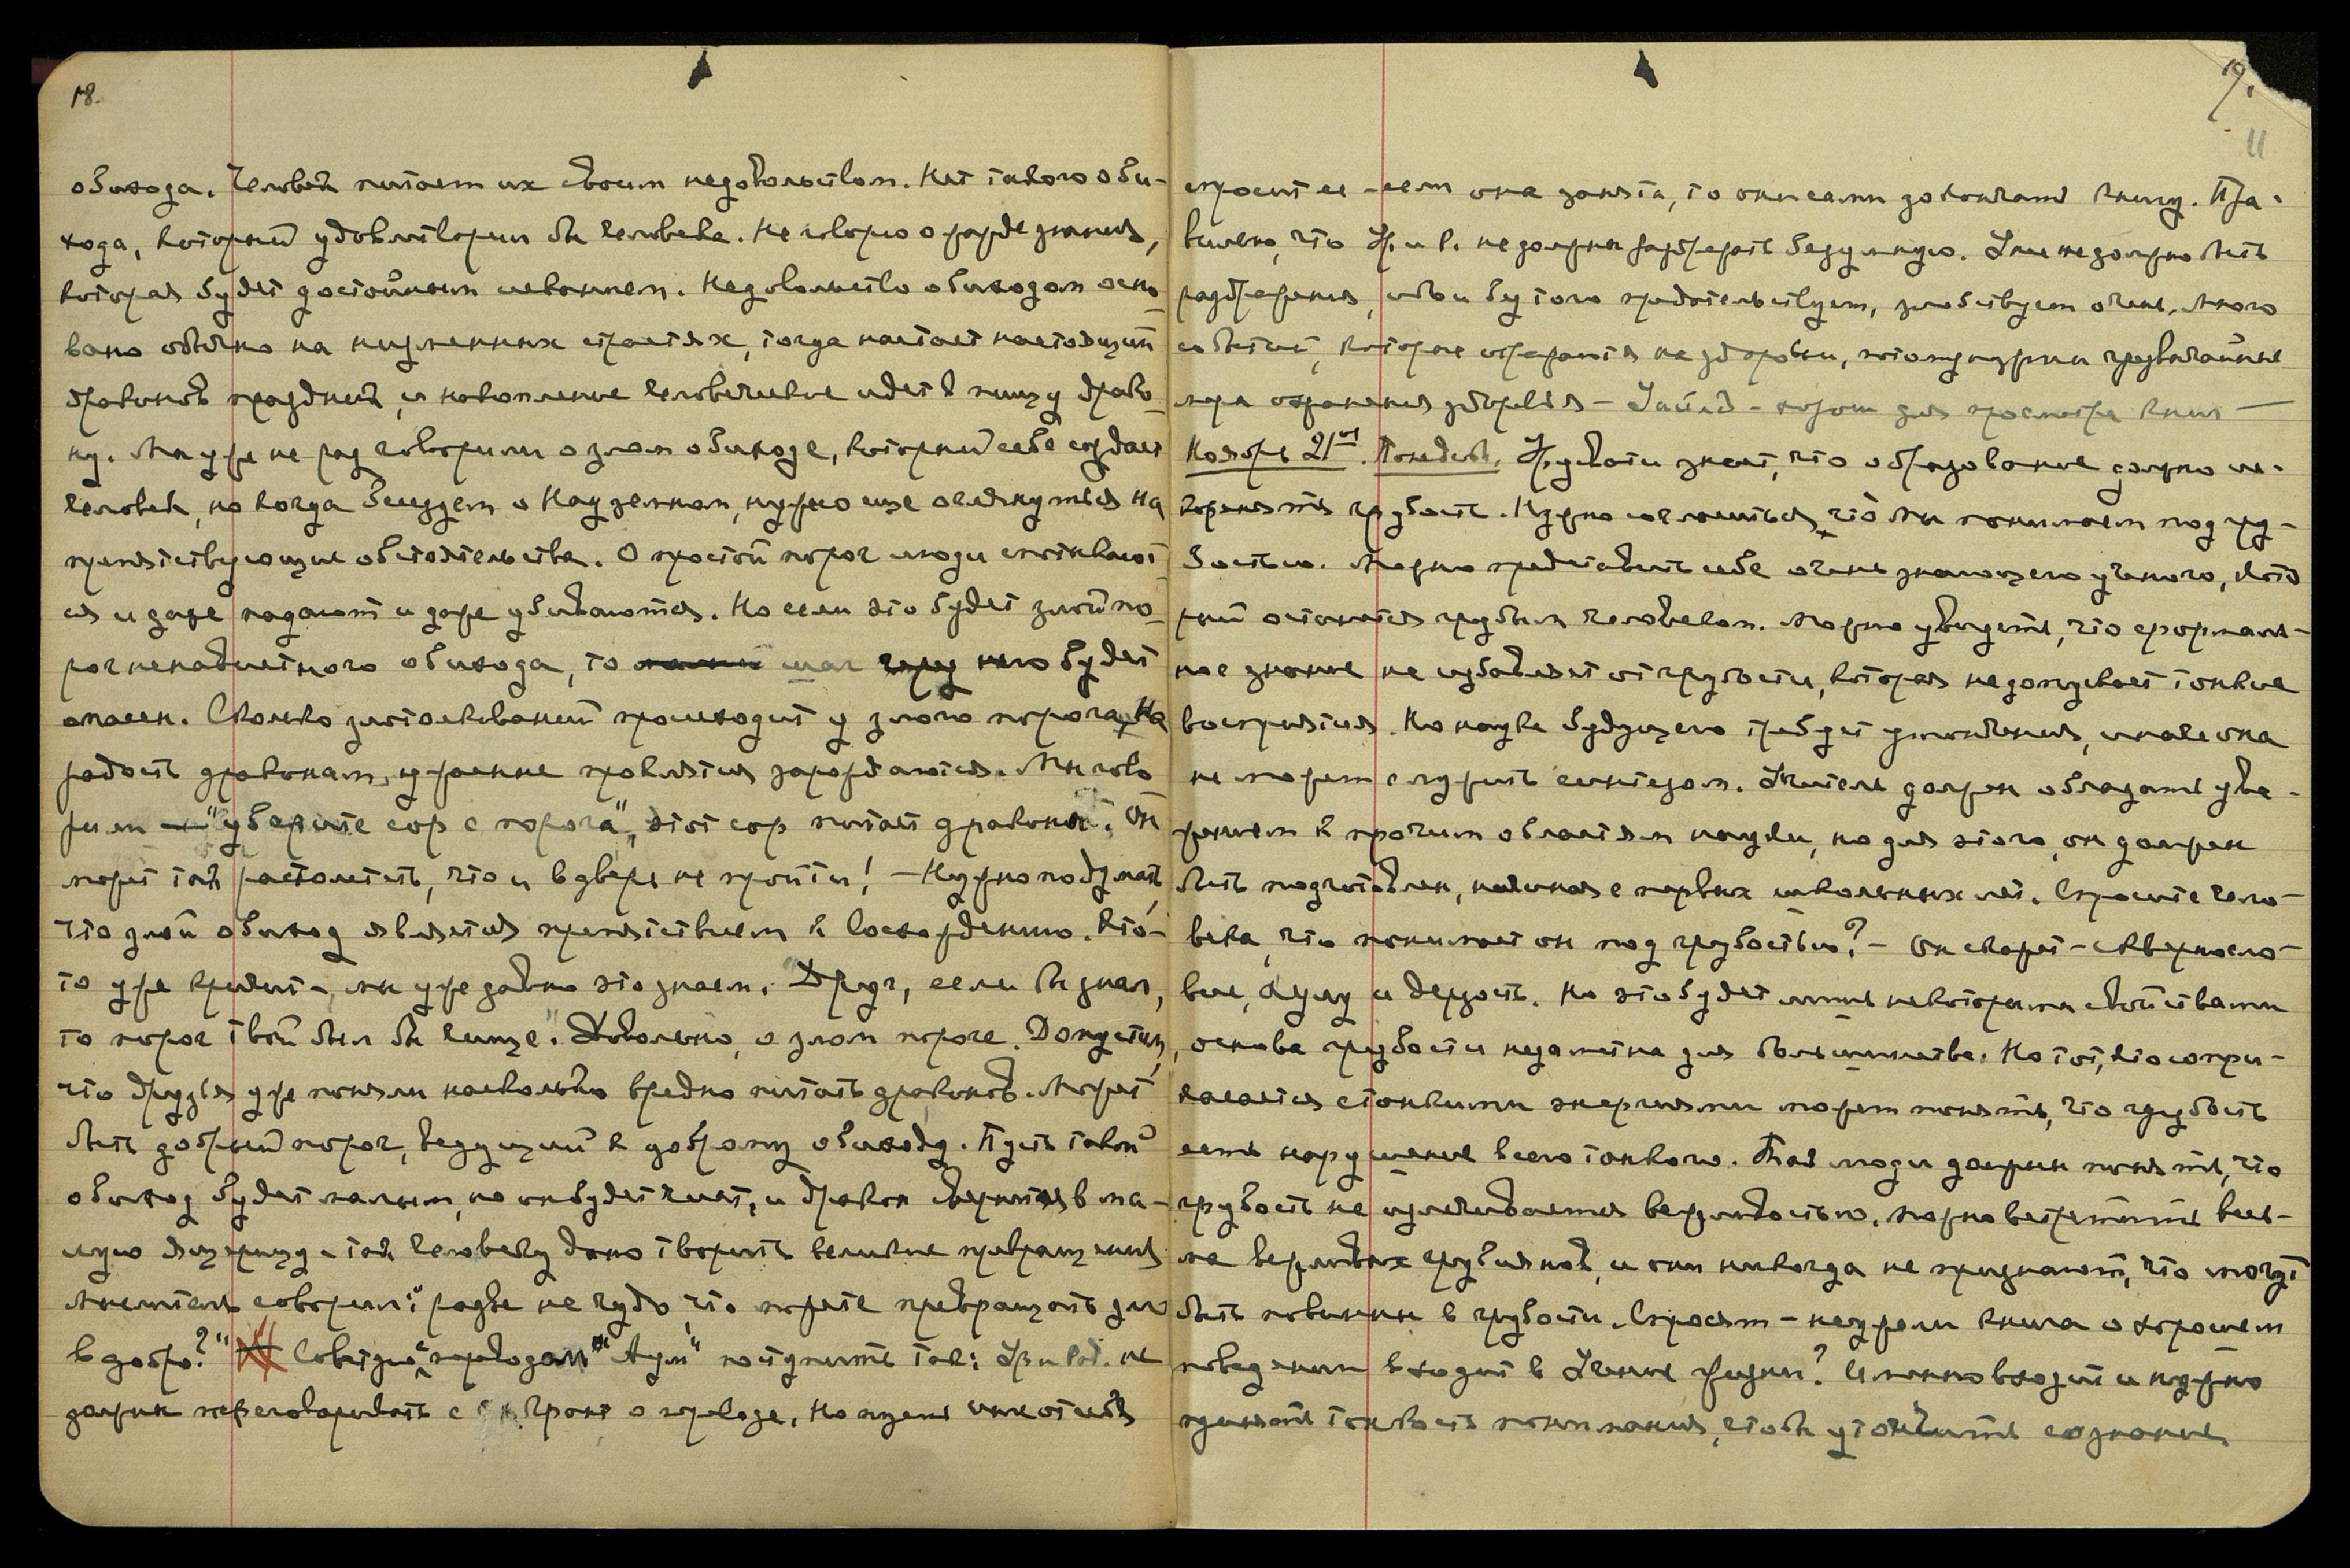 18.
обихода. Человек питает их своим недовольством. Нет такого оби-
хода, который удовлетворил бы человека. Не говорю о жажде знания,
которая будет достойным исканием. Недовольство обиходом осно-
вано обычно на низменных страстях, тогда настает настоящий
драконов праздник, и накопление человеческое идет в пищу драко-
ну. Мы уже не раз говорили о злом обиходе, который себе создает
человек, но когда беседуем о Надземном, нужно еще оглянуться на
препятствующие обстоятельства. О простой порог люди спотыкают-
ся и даже падают и даже убиваются. Но если это будет злой по-
рог ненавистного обихода, то шаг через него будет
опасен. Сколько злотолкований происходит у злого порога. На
радость драконам, ужасные проклятия зарождаются. Мы гово
рили "уберите сор с порога", этот сор питает дракона. Он
может так растолстеть, что и в дверь не пройти! — Нужно подумать,
что злой обиход является препятствием к восхождению. Кто-
то уже кричит — мы уже давно это знаем. "Друг, если бы знал,
то порог твой был бы чище". Довольно о злом пороге. Допустим,
что друзья уже поняли насколько вредно питать драконов. Может
быть добрый порог, ведущий к доброму обиходу. Пусть такой
обиход будет малым, но он будет чист, и дракон обернется в ма-
лую ящерицу — так человеку дано творить великие превращения.
Мыслитель говорил: "разве не чудо, что можете превращать зло
в добро?" Советую с переводом "Аум" поступить так: не
должны переговаривать с о переводе, но пусть они отсюда
19.
11
спросит ее — если она занята, то они сами докончат книгу. Пра-
вильно, что не должны раздражать безумную. У нее не должно быть
раздражения, ибо и без того предательствует, злобствует очень. Много
событий, которые отражаются на здоровьи, потому нужны чрезвычайные
меры охранения здоровья — — хорош для просмотра книг —
Ноябрь 21ый. Понедельн. Урусвати знает, что образование должно ис-
коренять грубость. Нужно согласиться, что мы понимаем под гру-
бостью. Можно представить себе очень знающего ученого, кото
рый останется грубым человеком. Можно увидеть, что формаль-
ное знание не избавляет от грубости, которая не допускает тонкие
восприятия. Но наука будущего требует утончения, иначе она
не может служить синтезом. Учитель должен обладать ува-
жением к прочим областям науки, но для этого он должен
быть подготовлен, начиная с первых школьных лет. Спросите чело-
века, что понимает он под грубостью? — Он скажет — сквернosло-
вие, и дерзость. Но это будет лишь некоторыми свойствами
основа грубости незаметна для большинства. Но тот, кто сопри-
касается с тонкими энергиями может понять, что грубость
есть нарушение всего тонкого. Так люди должны понять, что
грубость не излечивается вежливостью. Можно встретить весь-
ма вежливых грубиянов, и они никогда не признают, что могут
быть повинны в грубости. Спросят — неужели книга о хорошем
поведении входит в Учение Жизни? Именно входит и нужно
принять тонкость понимания, чтобы утончить сознание,